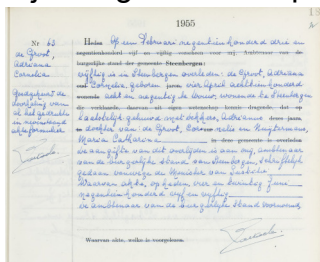 1955
Nr 63
de Groot,
Adriana
Cornelia
Goedgekeurd de
doorhaling van
al het gedrukte
in nevenstaand
akteformulier
Heden Op een Februari negentienhonderd drie en
negentienhonderd vijf en vijftig
burgerlijke stand der gemeente Steenbergen:
vijftig is in Steenbergen overleden: de Groot, Adriana
Cornelia geboren vier April achttienhonderd
acht en negentig wonende te Steenbergen
de verklaarde, daarvan uit eigen wetenschap kennis dragende, dat op
laatstelijk gehuwd met Dekkers, Adrianus
dochter van de Groot, Cornelis en Rugtermans,
Maria Catharina in deze gemeente is overleden
De aangifte van dit overlijden is aan ons, ambtenaar
van de burgerlijke stand van Steenbergen, schriftelijk
gedaan vanwege de Minister van Justitie
Waarvan akte, op heden vier en twintig Juni
negentienhonderd vijf en vijftig
de ambtenaar van de burgerlijke stand voornoemd,
Waarvan akte, welke is voorgelezen.